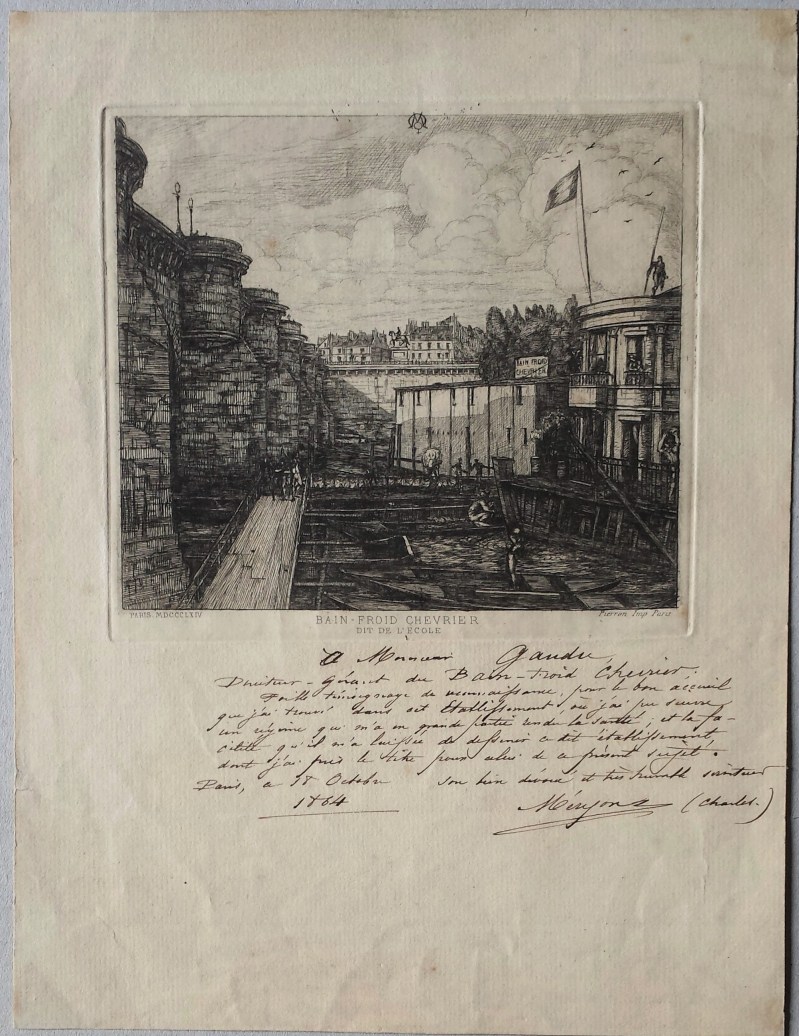 BAIN FROID
CHEVRIER
PARIS. MDCCCLXIV
BAIN-FROID CHEVRIER
DIT DE L'ÉCOLE
Pierron Imp. Paris
A Monsieur Gaudu,
Directeur-Gérant du Bain-froid Chevrier;
Faible témoignage de reconnaissance, pour le bon accueil
que j'ai trouvé dans cet Etablissement, où j'ai pu suivre
un régime qui m'a en grande partie rendu la santé; et la fa-
cilité qu'il m'a laissée de dessiner ce dit établissement,
dont j'ai pris le titre pour celui de ce présent sujet.
Paris, ce 18 Octobre
1864
son bien dévoué et très humble serviteur
Méryon (Charles.)